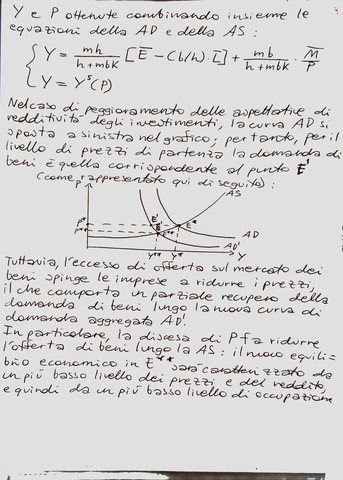 Y e P ottenute combinando insieme le
equazioni della AD e della AS :
{ Y = mh/(h+mbk) [Ē - (b/h)·Ī] + mb/(h+mbk) · M̄/P
Y = Yˢ(P)
Nel caso di peggioramento delle aspettative di
redditività degli investimenti, la curva AD si
sposta a sinistra nel grafico; pertanto, per il
livello di prezzi di partenza la domanda di
beni è quella corrispondente al punto E'
(come rappresentato qui di seguito) :
P
AS
P*
E'
E*
P**
E**
AD
AD'
Y** Y* Y
Tuttavia, l'eccesso di offerta sul mercato dei
beni spinge le imprese a ridurre i prezzi,
il che comporta un parziale recupero della
domanda di beni lungo la nuova curva di
domanda aggregata AD'.
In particolare, la discesa di P fa ridurre
l'offerta di beni lungo la AS : il nuovo equili=
brio economico in E** sarà caratterizzato da
un più basso livello dei prezzi e del reddito,
e quindi da un più basso livello di occupazione